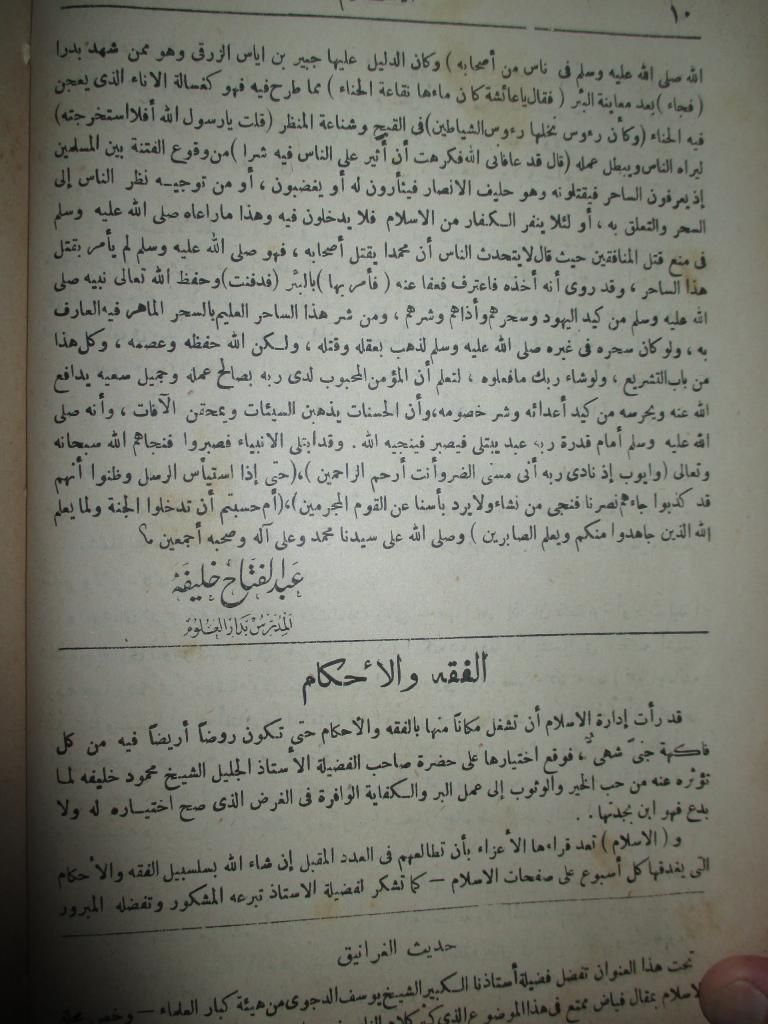 ١٠
الله صلى الله عليه وسلم فى ناس من أصحابه ) وكان الدليل عليها جبير بن اياس الزرقى وهو ممن شهد بدرا
( فجاء ) بعد معاينة البئر ( فقال ياعائشة كان ماءها نقاعة الحناء ) مما طرح فيه فهو كغسالة الاناء الذى يعجن
فيه الحناء (وكأن رءوس نخلها رءوس الشياطين) فى القبح وشناعة المنظر (قلت يارسول الله أفلا استخرجته)
ليراه الناس ويبطل عمله (قال قد عافانى الله فكرهت أن أثير على الناس فيه شرا ) من وقوع الفتنة بين المسلمين
إذ يعرفون الساحر فيقتلونه وهو حليف الانصار فيثأرون له أو يغضبون ، أو من توجيـه نظر الناس إلى
السحر والتعلق به ، أو لئلا ينفر الكفار من الاسلام فلا يدخلون فيه وهذا ماراعاه صلى الله عليه وسلم
فى منع قتل المنافقين حيث قال لايتحدث الناس أن محمدا يقتل أصحابه ، فهو صلى الله عليه وسلم لم يأمر بقتل
هذا الساحر ، وقد روى أنه أخذه فاعترف فعفا عنه ( فأمر بها ) بالبئر (فدفنت) وحفظ الله تعالى نبيه صلى
الله عليه وسلم من كيد اليهود وسحرهم وأذاهم وشرهم ، ومن شر هذا الساحر العليم بالسحر الماهر فيه العارف
به ، ولو كان سحره فى غيره صلى الله عليه وسلم لذهب بعقله وقتله ، ولكن الله حفظه وعصمه ، وكل هذا
من باب التشريع ، ولوشاء ربك مافعلوه ، لتعلم أن المؤمن المحبوب لدى ربه بصالح عمله وجميل سعيه يدافع
الله عنه ويحرسه من كيد أعدائه وشر خصومه، وأن الحسنات يذهبن السيئات ويمحقن الآفات ، وأنه صلى
الله عليه وسلم أمام قدرة ربه عبد يبتلى فيصبر فينجيه الله . وقد ابتلى الانبياء فصبروا فنجاهم الله سبحانه
وتعالى (وايوب إذ نادى ربه أنى مسنى الضر وأنت أرحم الراحمين )،(حتى إذا استيأس الرسل وظنوا أنهم
قد كذبوا جاءهم نصرنا فنجى من نشاء ولا يرد بأسنا عن القوم المجرمين)،(أم حسبتم أن تدخلوا الجنة ولما يعلم
الله الذين جاهدوا منكم ويعلم الصابرين ) وصلى الله على سيدنا محمد وعلى آله وصحبه أجمعين
عبد الفتاح خليفه
المدرس بدار العلوم
الفقه والأحكام
قد رأت إدارة الاسلام أن تشغل مكاناً منها بالفقه والأحكام حتى تكون روضاً أريضاً فيه من كل
فاكهة جنىّ شهىّ ، فوقع اختيارها على حضرة صاحب الفضيلة الأستاذ الجليل الشيخ محمود خليفه لما
تؤثره عنه من حب الخير والوثوب إلى عمل البر والكفاية الوافرة فى الغرض الذى صح اختياره له ولا
بدع فهو ابن بجدتها . .
و ( الاسلام ) تعد قراءها الأعزاء بأن تطالعهم فى العدد المقبل إن شاء الله بسلسبيل الفقه والأحكام
التى يغدقها كل أسبوع على صفحات الاسلام — كما تشكر لفضيلة الاستاذ تبرعه المشكور وتفضله المبرور
حديث الغرانيق
تحت هذا العنوان تفضل فضيلة أستاذنا الكبير الشيخ يوسف الدجوى من هيئة كبار العلماء — وخص
بمقال فياض ممتع فى هذا الموضوع الذى كثر كلام